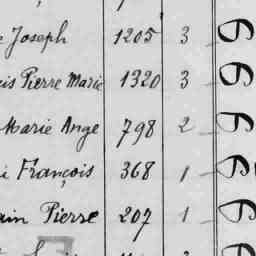 Joseph 1205 3
is Pierre Marie 1320 3
Marie Ange 798 2
i François 368 1
in Pierre 207 1